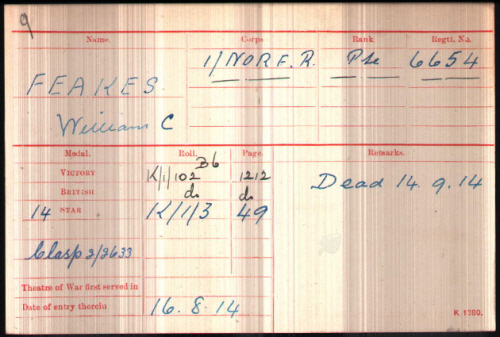 9
Name. Corps. Rank. Regtl. No.
1/NORF.R. Pte 6654
FEAKES.
William C
Medal. Roll. Page. Remarks.
VICTORY K/1/102 B6 1212
BRITISH do do
14 STAR K/1/3 49
Dead 14.9.14
Clasp 2/2633
Theatre of War first served in
Date of entry therein 16.8.14
K 1380.